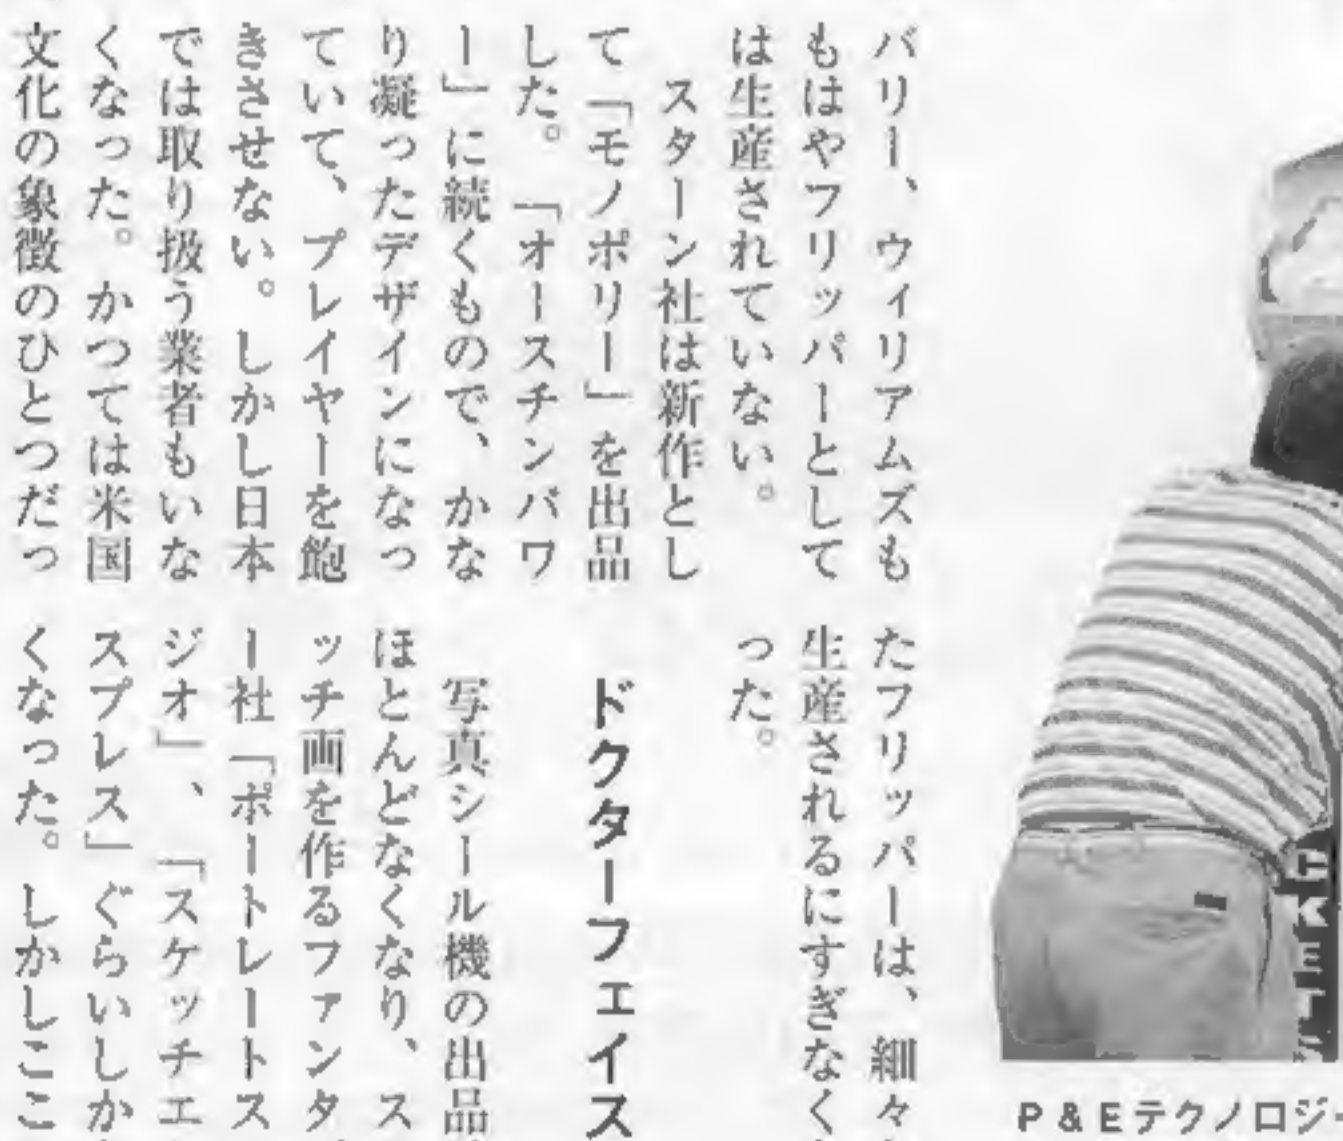 バリー、ウィリアムズも
もはやフリッパーとして
は生産されていない。
スターン社は新作とし
て「モノポリー」を出品
した。「オースチンパワ
ー」に続くもので、かな
り凝ったデザインになっ
ていて、プレイヤーを飽
きさせない。しかし日本
では取り扱う業者もいな
くなった。かつては米国
文化の象徴のひとつだっ
たフリッパーは、細々
生産されるにすぎなく
った。
ドクターフェイス
写真シール機の出品
ほとんどなくなり、ス
ッチ画を作るファンタ
ー社「ポートレートス
ジオ」、「スケッチエ
スプレス」ぐらいしか
くなった。しかしここ
P&Eテクノロジ